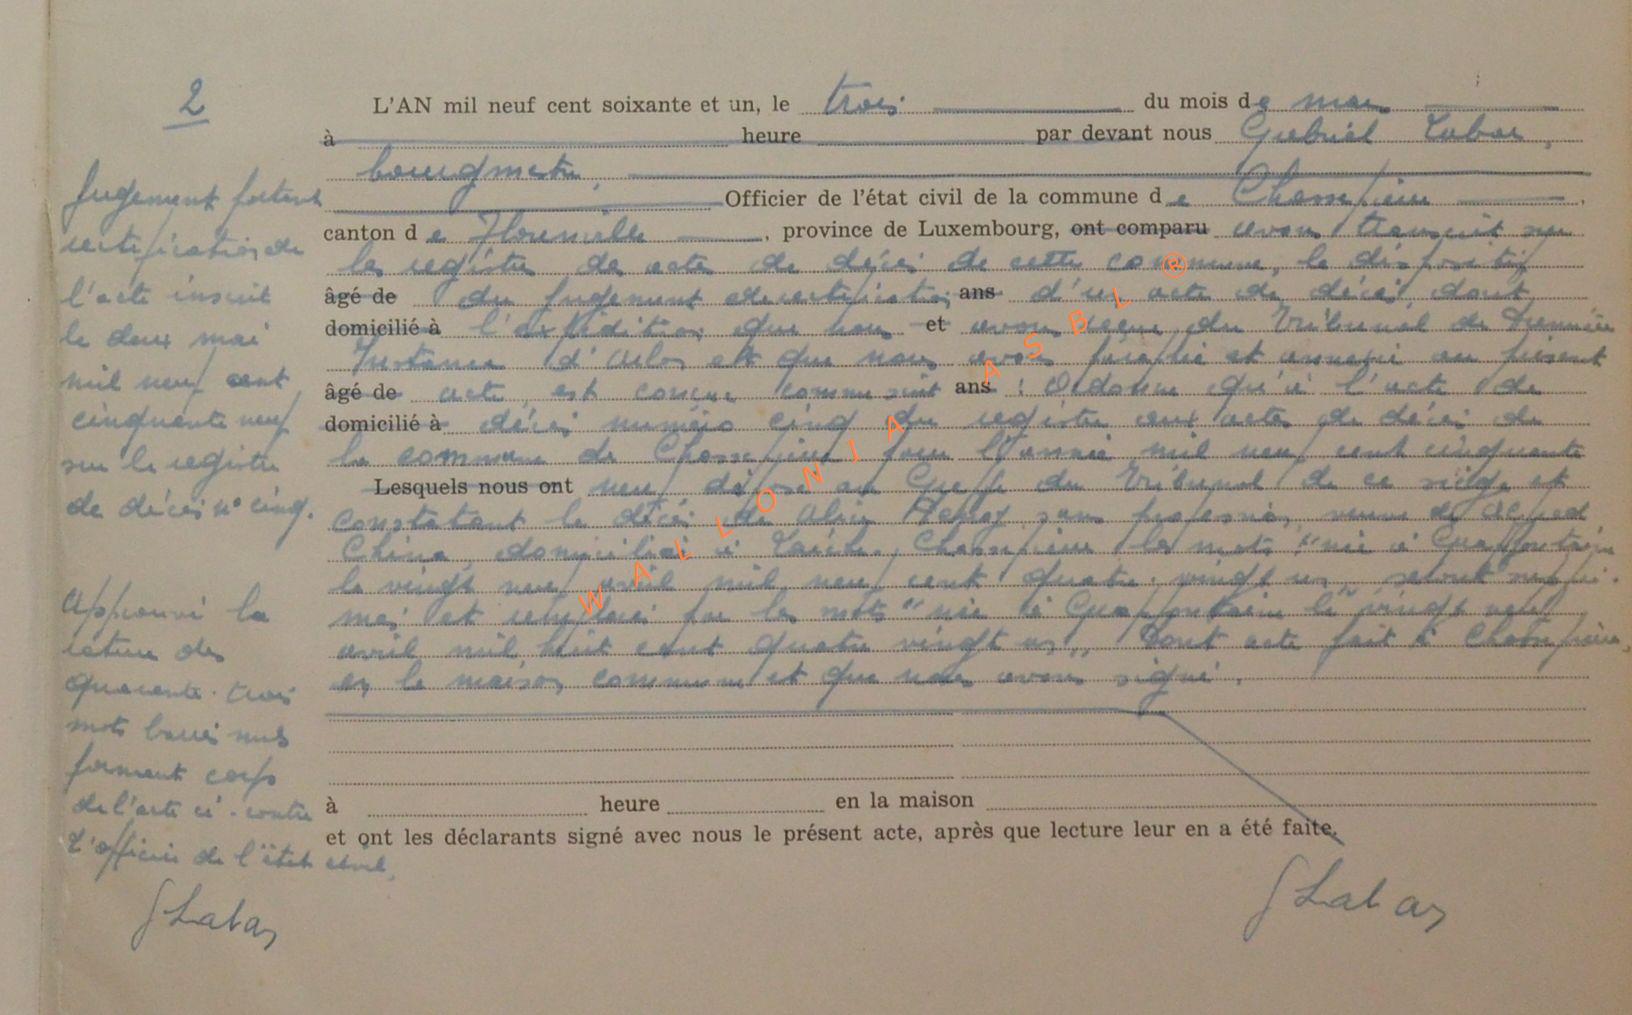 2
L'AN mil neuf cent soixante et un, le trois du mois de mars
à heure par devant nous Gabriel Labar,
bourgmestre,
Officier de l'état civil de la commune de Chassepierre,
canton de Florenville, province de Luxembourg, ont comparu avons transcrit sur
les registres des actes de décès de cette commune, le dispositif
âgé de du jugement de rectification ans d'un acte de décès, dont
domicilié à l'expédition que nous et avons reçue du Tribunal de Première
Instance d'Arlon et que nous avons paraphé et annexé au présent
âgé de acte, est conçue comme suit ans : Ordonne qu'à l'acte de
domicilié à décès numéro cinq du registre aux actes de décès de
la commune de Chassepierre pour l'année mil neuf cent cinquante
Lesquels nous ont neuf déposé au Greffe du Tribunal de ce siège et
constatant le décès de sans profession, veuve de
China, domiciliée à Laiche, Chassepierre les mots "née à Grapfontaine
le vingt neuf avril mil neuf cent quatre-vingt un, seront suppri-
més et remplacés par les mots "née à Grapfontaine le vingt neuf
avril mil huit cent quatre vingt un" Dont acte fait à Chassepierre,
en la maison communale et que nous avons signé.
à heure en la maison
et ont les déclarants signé avec nous le présent acte, après que lecture leur en a été faite.
GLabar
Jugement portant
rectification de
l'acte inscrit
le deux mai
mil neuf cent
cinquante neuf
sur le registre
de décès n° cinq.
Approuvé la
rature des
quarante-trois
mots barrés nuls
formant corps
de l'acte ci-contre
L'officier de l'état civil,
GLabar
WALLONIA ASBL ®